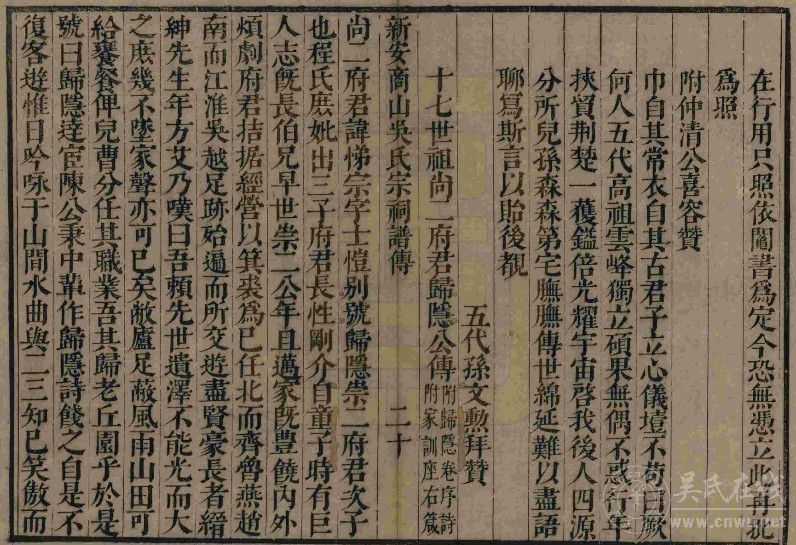 在行用只照依鬮書爲定今恐無憑立此再批
爲照
附仲清公喜容贊
巾自其常衣自其古君子立心儀壇不苟曰厥
何人五代高祖雲峰獨立碩果無偶不惑行年
挾貲荆楚一獲鎰倍光耀宇宙啓我後人四源
分所兒孫森森第宅膴膴傳世綿延難以盡語
聊寫斯言以貽後覩
五代孫文勲拜贊
十七世祖尚二府君歸隱公傳 附歸隱卷序詩
附家訓座右箴
新安商山吳氏宗祠譜傳 二十
尚二府君諱悌宗字士愷别號歸隱崇二府君次子
也程氏庶妣出三子府君長性剛介自童子時有巨
人志旣長伯兄早世崇二公年且邁家旣豊饒内外
煩劇府君拮据經營以箕裘爲已任北而齊魯燕趙
南而江淮吳越足跡殆遍而所交遊盡賢豪長者縉
紳先生年方艾乃嘆曰吾賴先世遺澤不能光而大
之庶幾不墜家聲亦可已矣敝廬足蔽風雨山田可
給饔飱俾兒曹分任其職業吾其歸老丘園乎於是
號曰歸隱達宦陳公秉中輩作歸隱詩餞之自是不
復客遊惟日吟咏于山間水曲與二三知已笑傲而
吴氏在线
www.cnwu.net